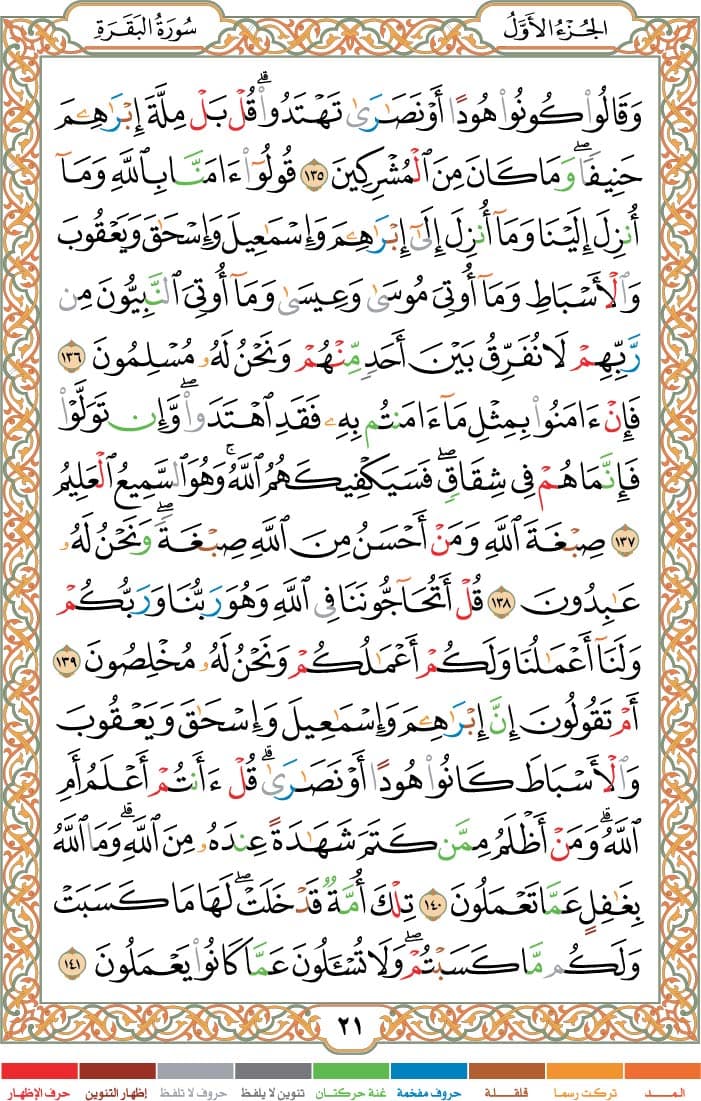 الجُزْءُ الأَوَّلُ
سُورَةُ البَقَرَةِ
وَقَالُوا۟ كُونُوا۟ هُودًا أَوْ نَصَـٰرَىٰ تَهْتَدُوا۟ ۗ قُلْ بَلْ مِلَّةَ إِبْرَٰهِـۧمَ
حَنِيفًا ۖ وَمَا كَانَ مِنَ ٱلْمُشْرِكِينَ ١٣٥ قُولُوٓا۟ ءَامَنَّا بِٱللَّهِ وَمَآ
أُنزِلَ إِلَيْنَا وَمَآ أُنزِلَ إِلَىٰٓ إِبْرَٰهِـۧمَ وَإِسْمَـٰعِيلَ وَإِسْحَـٰقَ وَيَعْقُوبَ
وَٱلْأَسْبَاطِ وَمَآ أُوتِىَ مُوسَىٰ وَعِيسَىٰ وَمَآ أُوتِىَ ٱلنَّبِيُّونَ مِن
رَّبِّهِمْ لَا نُفَرِّقُ بَيْنَ أَحَدٍ مِّنْهُمْ وَنَحْنُ لَهُۥ مُسْلِمُونَ ١٣٦
فَإِنْ ءَامَنُوا۟ بِمِثْلِ مَآ ءَامَنتُم بِهِۦ فَقَدِ ٱهْتَدَوا۟ ۖ وَّإِن تَوَلَّوْا۟
فَإِنَّمَا هُمْ فِى شِقَاقٍ ۖ فَسَيَكْفِيكَهُمُ ٱللَّهُ ۚ وَهُوَ ٱلسَّمِيعُ ٱلْعَلِيمُ
١٣٧ صِبْغَةَ ٱللَّهِ ۖ وَمَنْ أَحْسَنُ مِنَ ٱللَّهِ صِبْغَةً ۖ وَنَحْنُ لَهُۥ
عَـٰبِدُونَ ١٣٨ قُلْ أَتُحَآجُّونَنَا فِى ٱللَّهِ وَهُوَ رَبُّنَا وَرَبُّكُمْ
وَلَنَآ أَعْمَـٰلُنَا وَلَكُمْ أَعْمَـٰلُكُمْ وَنَحْنُ لَهُۥ مُخْلِصُونَ ١٣٩
أَمْ تَقُولُونَ إِنَّ إِبْرَٰهِـۧمَ وَإِسْمَـٰعِيلَ وَإِسْحَـٰقَ وَيَعْقُوبَ
وَٱلْأَسْبَاطَ كَانُوا۟ هُودًا أَوْ نَصَـٰرَىٰ ۗ قُلْ ءَأَنتُمْ أَعْلَمُ أَمِ
ٱللَّهُ ۗ وَمَنْ أَظْلَمُ مِمَّن كَتَمَ شَهَـٰدَةً عِندَهُۥ مِنَ ٱللَّهِ ۗ وَمَا ٱللَّهُ
بِغَـٰفِلٍ عَمَّا تَعْمَلُونَ ١٤٠ تِلْكَ أُمَّةٌ قَدْ خَلَتْ ۖ لَهَا مَا كَسَبَتْ
وَلَكُم مَّا كَسَبْتُمْ ۖ وَلَا تُسْـَٔلُونَ عَمَّا كَانُوا۟ يَعْمَلُونَ ١٤١
٢١
المـــد تركت رسما قلقـــلة حروف مفخمة غنة حركتـان تنوين لا يلفظ حروف لا تلفظ إظهار التنوين حرف الإظهار